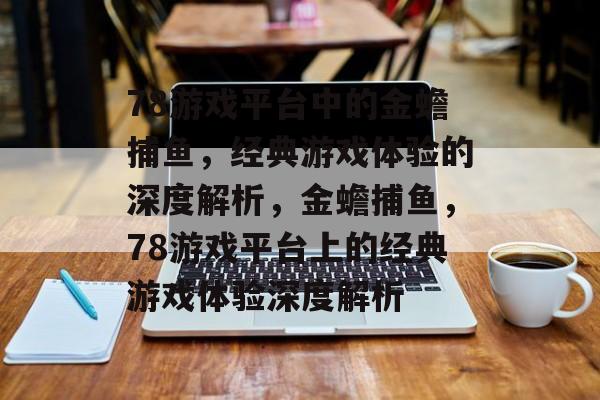 78游戏平台中的金蟾
捕鱼，经典游戏体验的
深度解析，金蟾捕鱼，
78游戏平台上的经典
游戏体验深度解析